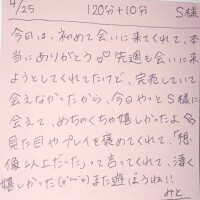 4/25 120分+10分 S様
今日は、初めて会いに来てくれて、本
当にありがとう♡ 先週も会いに来
ようとしてくれてたけど、完売していて
会えなかったから、今日やっとS様に
会えて、めちゃくちゃ嬉しかったよ
見た目やプレイを褒めてくれて、「想
像以上だった」って言ってくれて、凄く
嬉しかった(o'ω'o)また遊ぼうね!!
みと